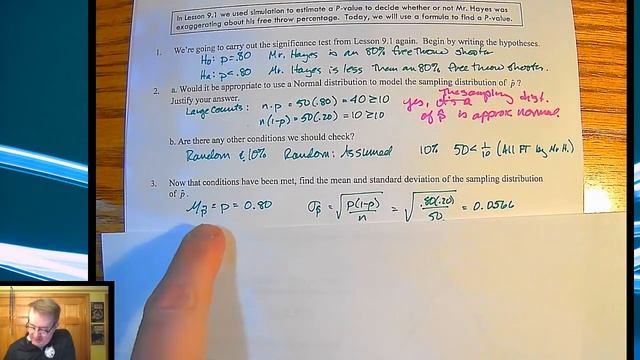 In Lesson 9.1 we used simulation to estimate a P-value to decide whether or not Mr. Hayes was
exaggerating about his free throw percentage. Today, we will use a formula to find a P-value.
1. We're going to carry out the significance test from Lesson 9.1 again. Begin by writing the hypotheses.
H₀: p=.80 Mr. Hayes is an 80% free throw shooter
Hₐ: p<.80 Mr. Hayes is less than an 80% free throw shooter.
2. a. Would it be appropriate to use a Normal distribution to model the sampling distribution of p̂?
Justify your answer.
Large Counts: n·p = 50(.80) = 40 ≥ 10
n(1-p) = 50(.20) = 10 ≥ 10
The sampling dist.
yes,
of p̂ is approx normal.
b. Are there any other conditions we should check?
Random & 10% Random: Assumed 10% 50 < 1/10 (All FT by Mr H.)
3. Now that conditions have been met, find the mean and standard deviation of the sampling distribution
of p̂.
μp̂ = p = 0.80 σp̂ = √(p(1-p)/n) = √(.80(.20)/50) = 0.0566